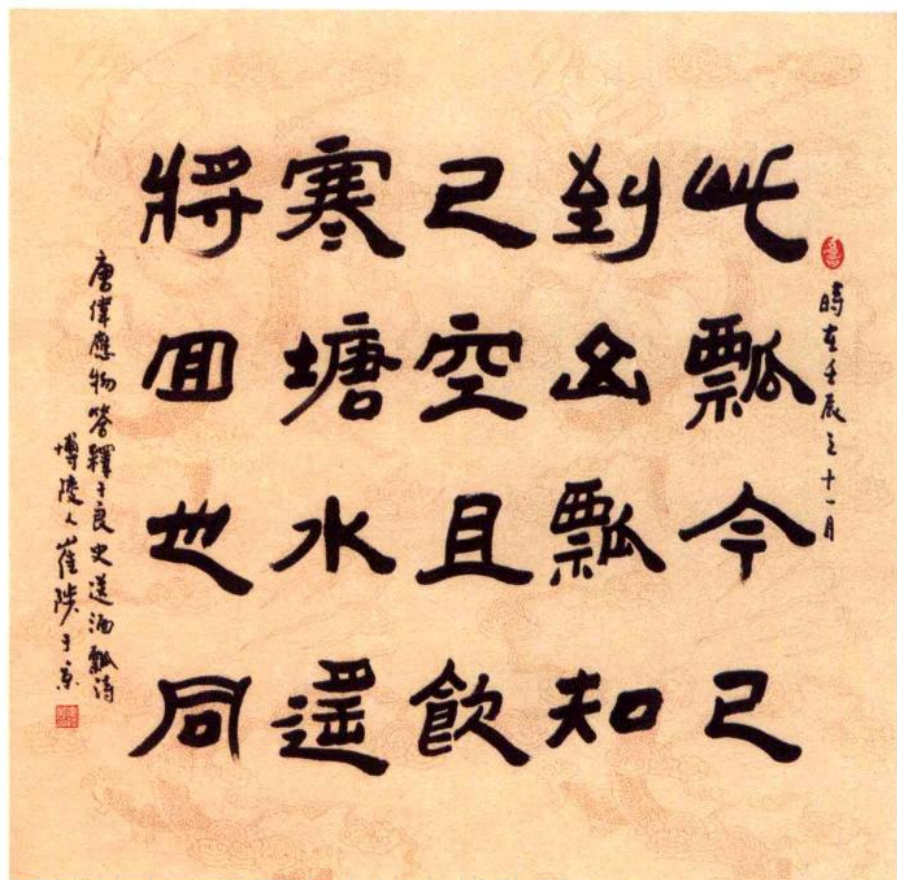 時在壬辰之十一月
此瓢今已
到山瓢知
已空且飲
寒塘水遙
將回也同
唐偉應物答釋子良史送酒瓢詩
博陵人崔陟于京